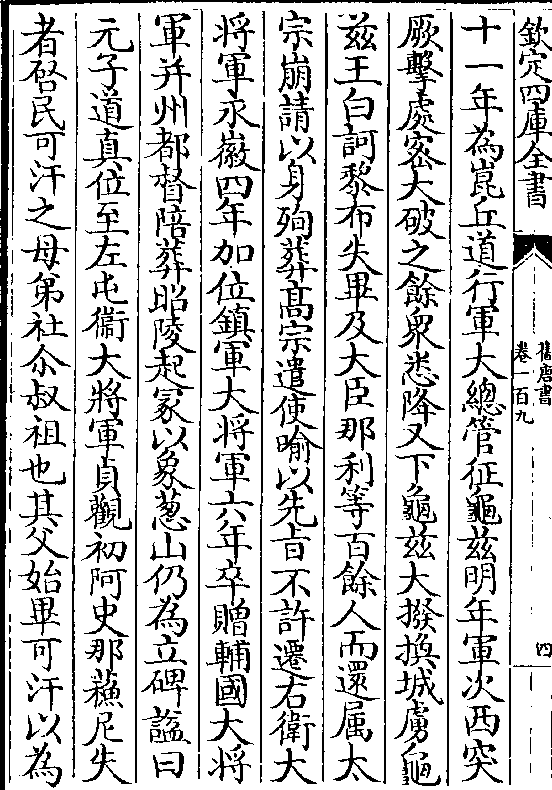 欽定四庫全書
舊唐書
卷一百九
四
十一年為崑丘道行軍大總管征龜兹明年軍次西突
厥擊處密大破之餘衆悉降又下龜兹大撥換城虜龜
兹王白訶黎布失畢及大臣那利等百餘人而還属太
宗崩請以身殉葬髙宗遣使喻以先㫖不許遷右衛大
將軍永徽四年加位鎮軍大将軍六年卒贈輔國大将
軍并州都督陪葬昭陵起冢以象葱山仍為立碑諡曰
元子道真位至左屯衛大將軍貞觀初阿史那蘓尼失
者啓民可汗之母弟社尒叔祖也其父始畢可汗以為